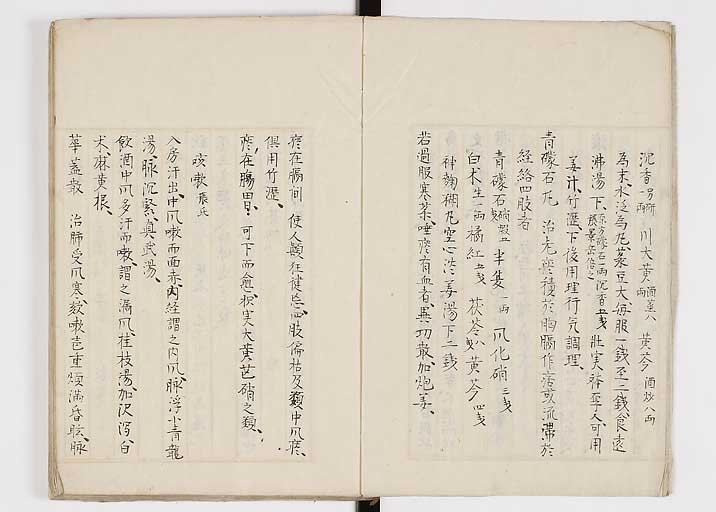 沉香 一方研 一両 川大黄 酒蒸八両 黄芩 酒炒八両
為末水泛為丸菉豆大毎服一錢至二錢食遠
沸湯下 壮実者至 人可用
姜汁竹瀝下後用理行気調理
青礞石丸 治九痰積於胸膈作痞或流滞於
経絡四肢者
青礞石 硝煆 半夏 一両 風化硝 三戔
白朮 生一両 橘紅 五戔 茯苓 黄芩 四戔
神麹糊丸空心淡姜湯下二錢
若過服寒薬唾痰有血者異功散加炮姜
痰在膈間使人顛狂健忘四肢偏枯及類中風痰
倶用竹瀝
痰在腸胃可下而愈枳実大黄芒硝之類
咳嗽 張氏
入房汗出中風嗽而面赤内経謂之内風脉浮小青龍
湯脉沉緊真武湯
飲酒中風多汗而嗽謂之漏風桂枝湯加沢瀉白
朮麻黄根
華蓋散 治肺受風寒欬嗽 重煩満昏眩脉